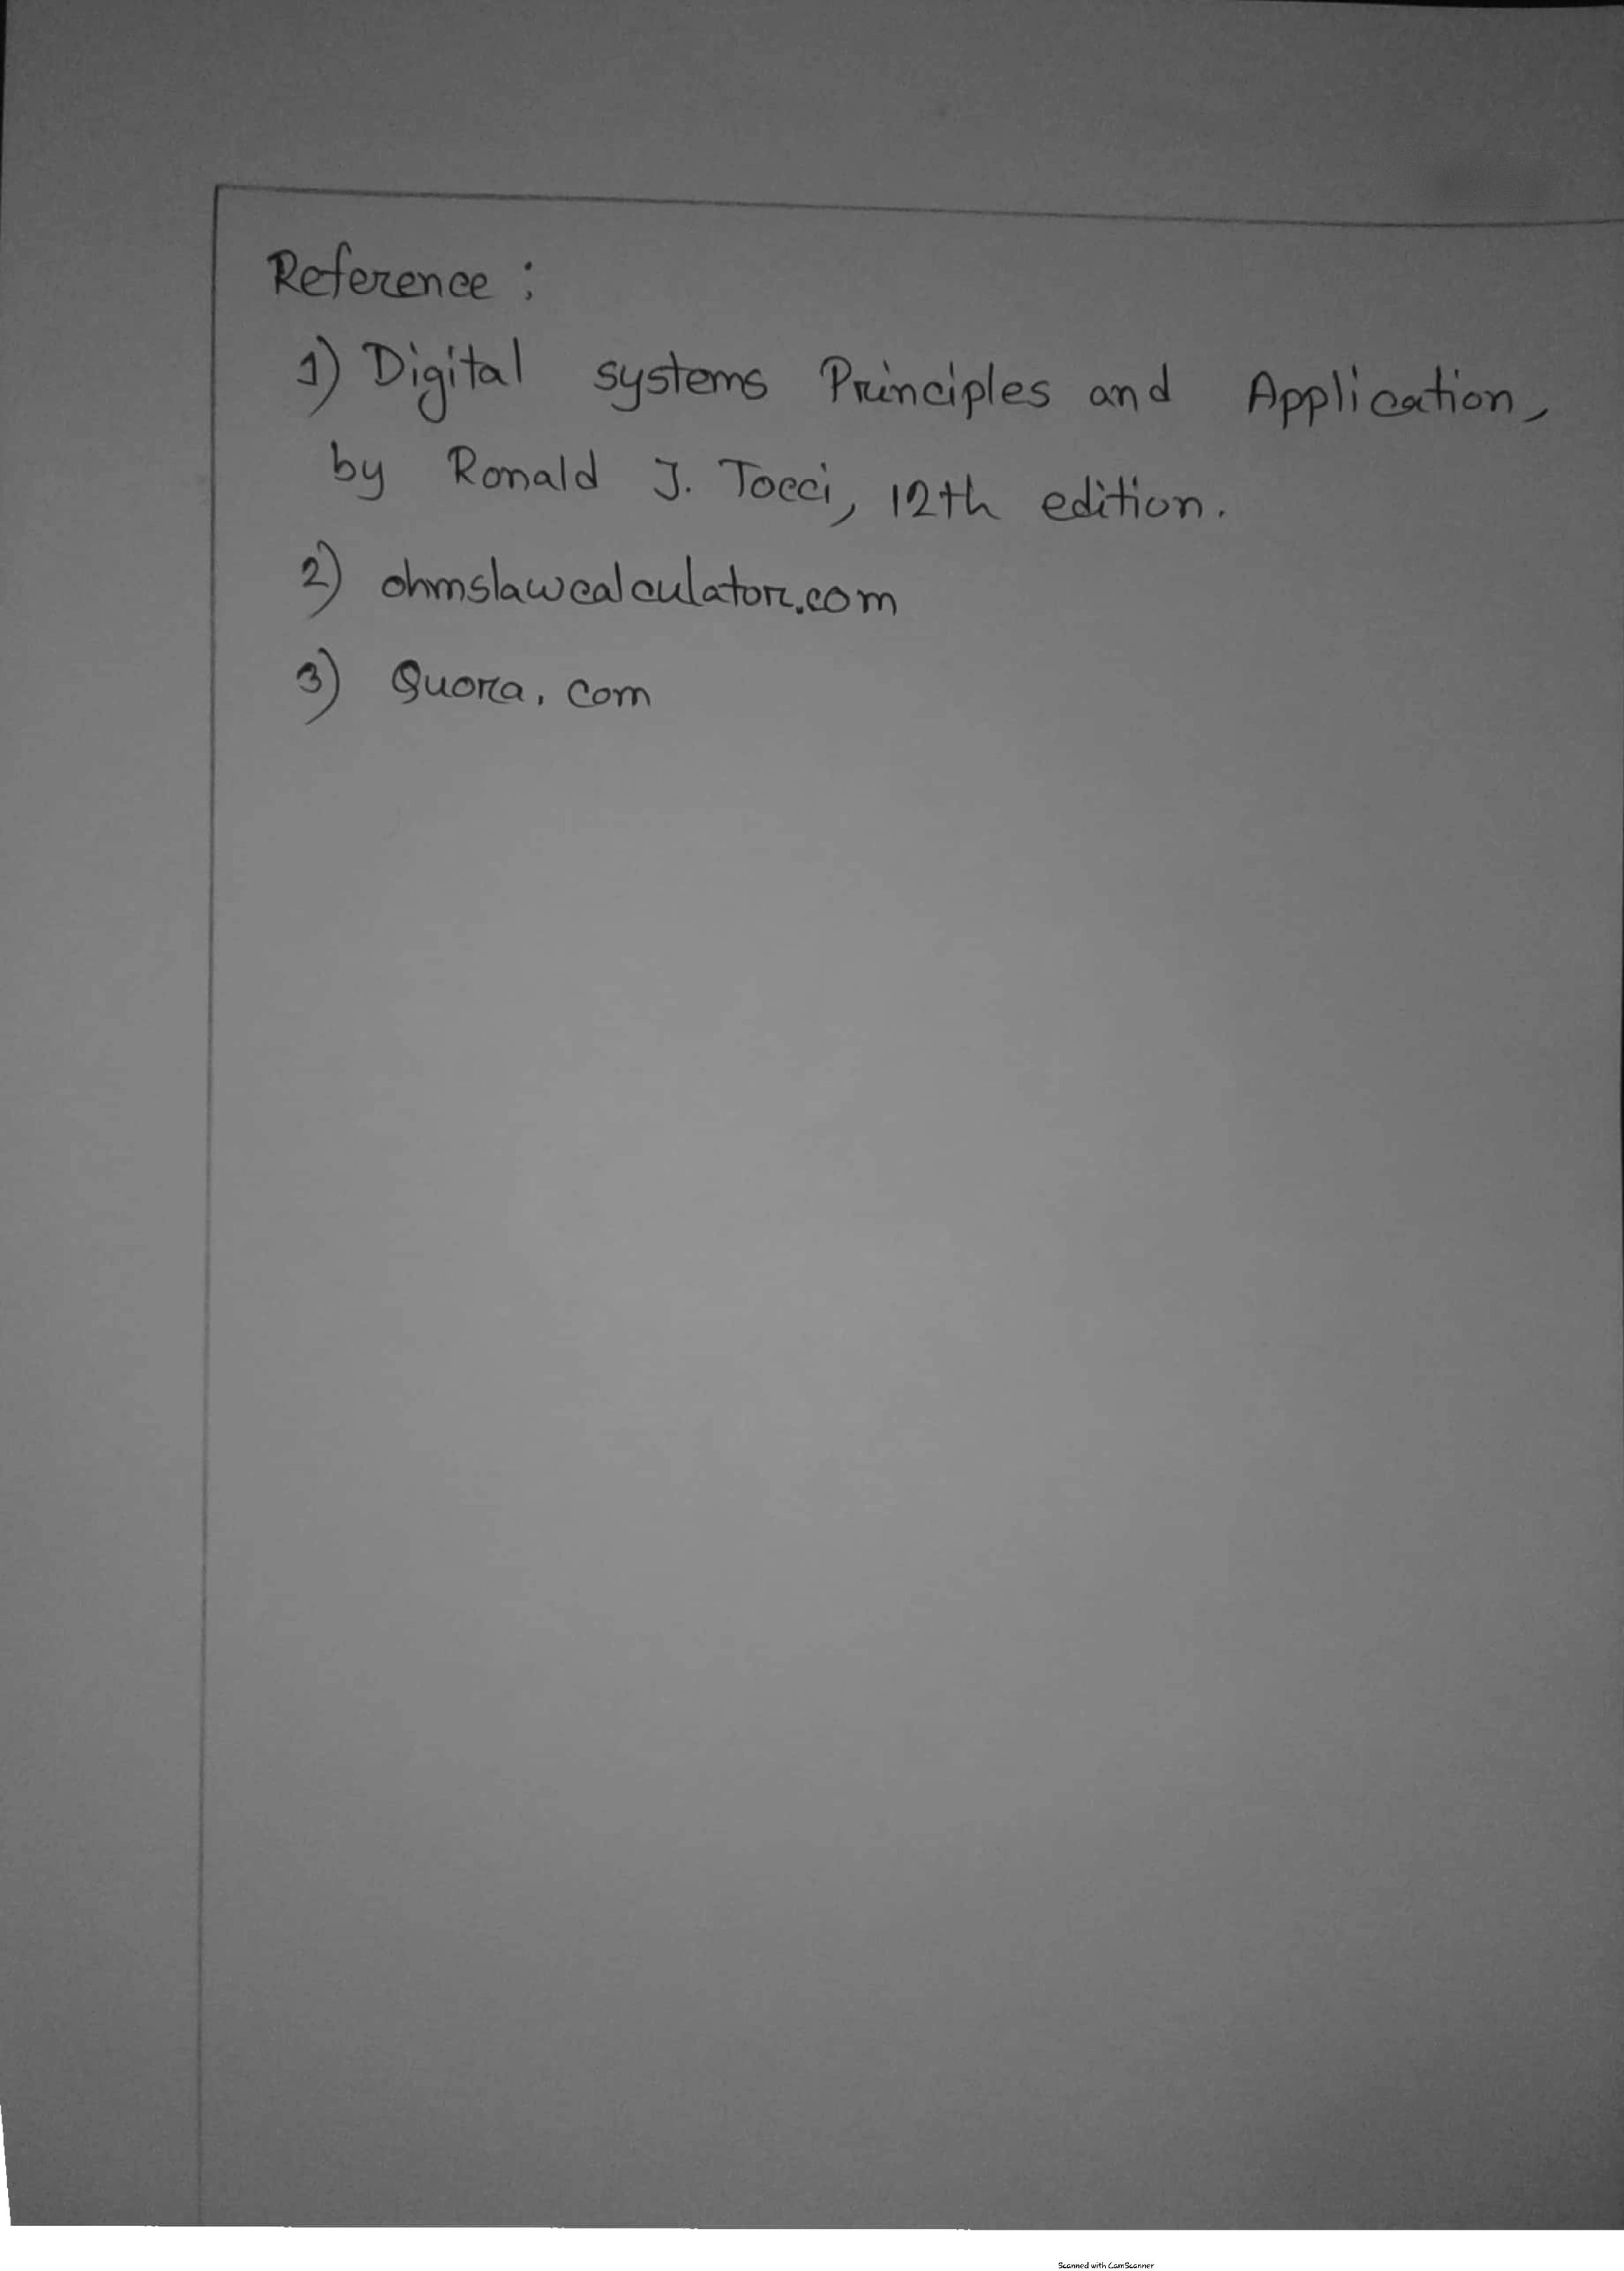 Reference :
1) Digital systems Principles and Application,
by Ronald J. Tocci, 12th edition.
2) ohmslawcalculator.com
3) Quora. com
Scanned with CamScanner